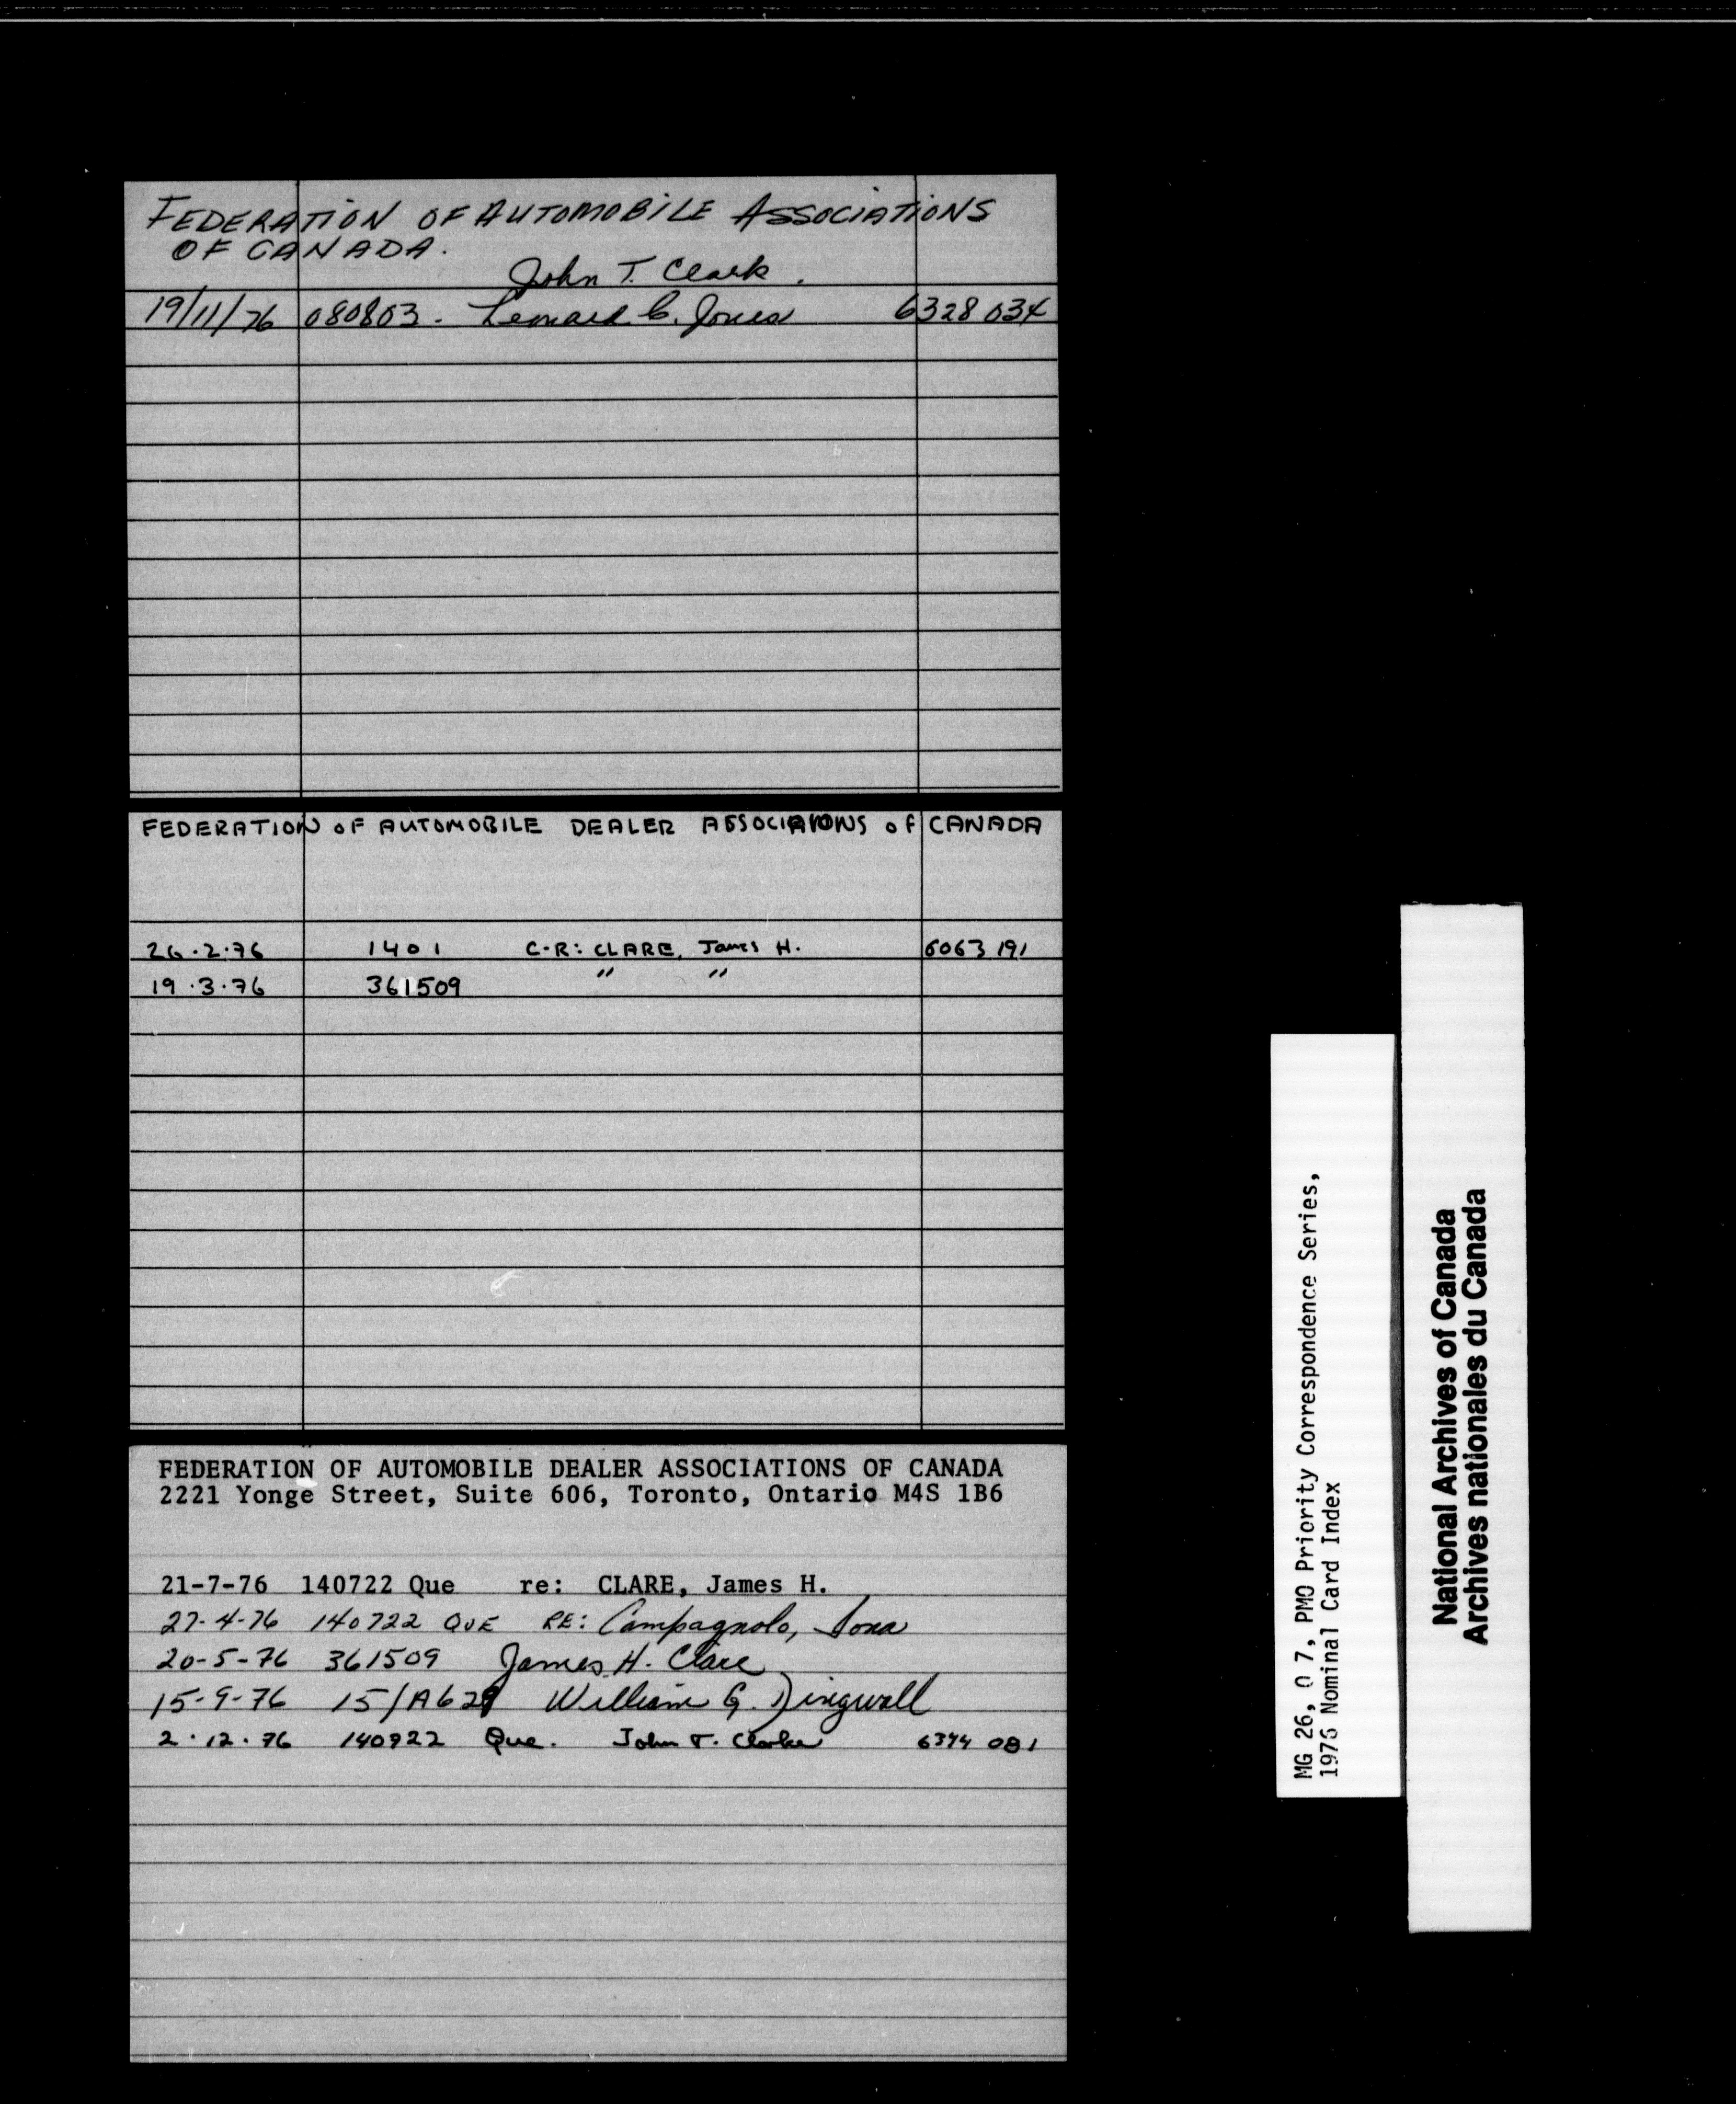 FEDERATION OF AUTOMOBILE ASSOCIATIONS
OF CANADA.
John T. Clark.
19/11/76 080803. Leonard C. Jones 6328 034
FEDERATION OF AUTOMOBILE DEALER ASSOCIATIONS of CANADA
26.2.76 1401 C.R: CLARE, James H. 6063 191
19.3.76 361509 " "
FEDERATION OF AUTOMOBILE DEALER ASSOCIATIONS OF CANADA
2221 Yonge Street, Suite 606, Toronto, Ontario M4S 1B6
21-7-76 140722 Que re: CLARE, James H.
27-4-76 140722 QUE RE: Campagnolo, Iona
20-5-76 361509 James H. Clare
15-9-76 William G. Dingwall
2.12.76 140722 Que. John T. Clarke 6374 081
MG 26, O 7, PMO Priority Correspondence Series,
1976 Nominal Card Index
National Archives of Canada
Archives nationales du Canada